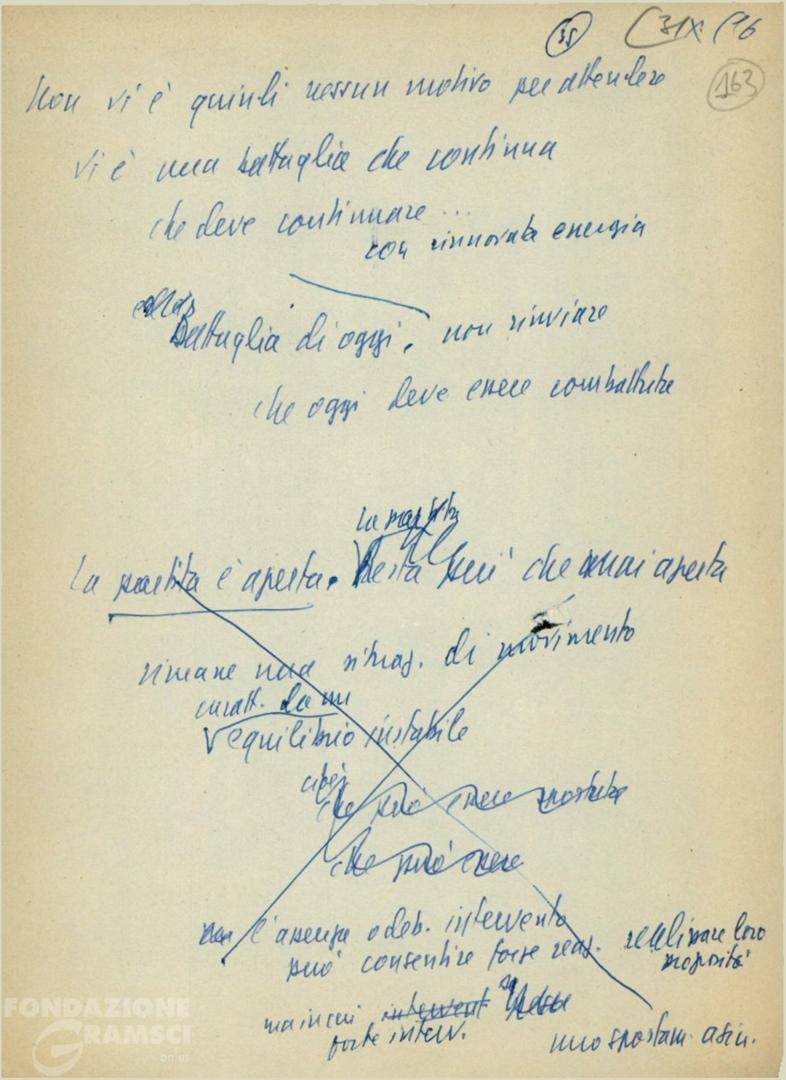 35 31X (16
163
Non vi è quindi nessun motivo per attendere
Vi è una battaglia che continua
che deve continuare...
con rinnovata energia
Battaglia di oggi, non rinviare
che oggi deve essere combattuta
La partita
La partita è aperta. Resta più che mai aperta
rimane una situaz. di movimento
caratt. da un
equilibrio instabile
cioè
che può essere spostata
che può essere
l'assenza o deb. intervento
può consentire forze reaz. realizzare loro
propositi
ma in cui intervent
forte interv.
uno spostam. a sin.
FONDAZIONE
GRAMSCI
onlus